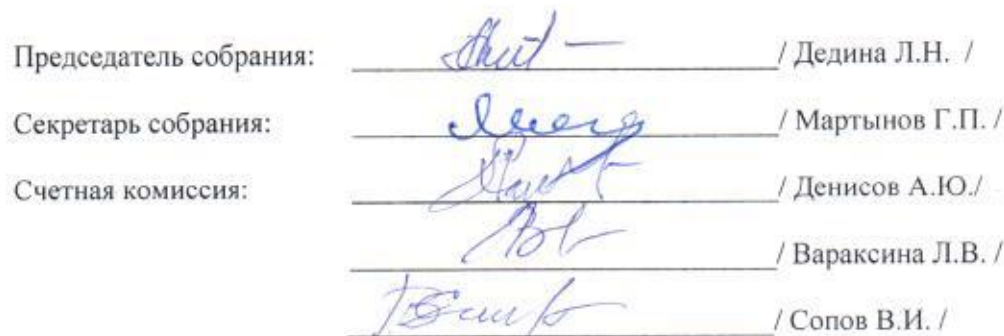 Председатель собрания: / Дедина Л.Н. /
Секретарь собрания: / Мартынов Г.П. /
Счетная комиссия: / Денисов А.Ю./
/ Вараксина Л.В. /
/ Сопов В.И. /